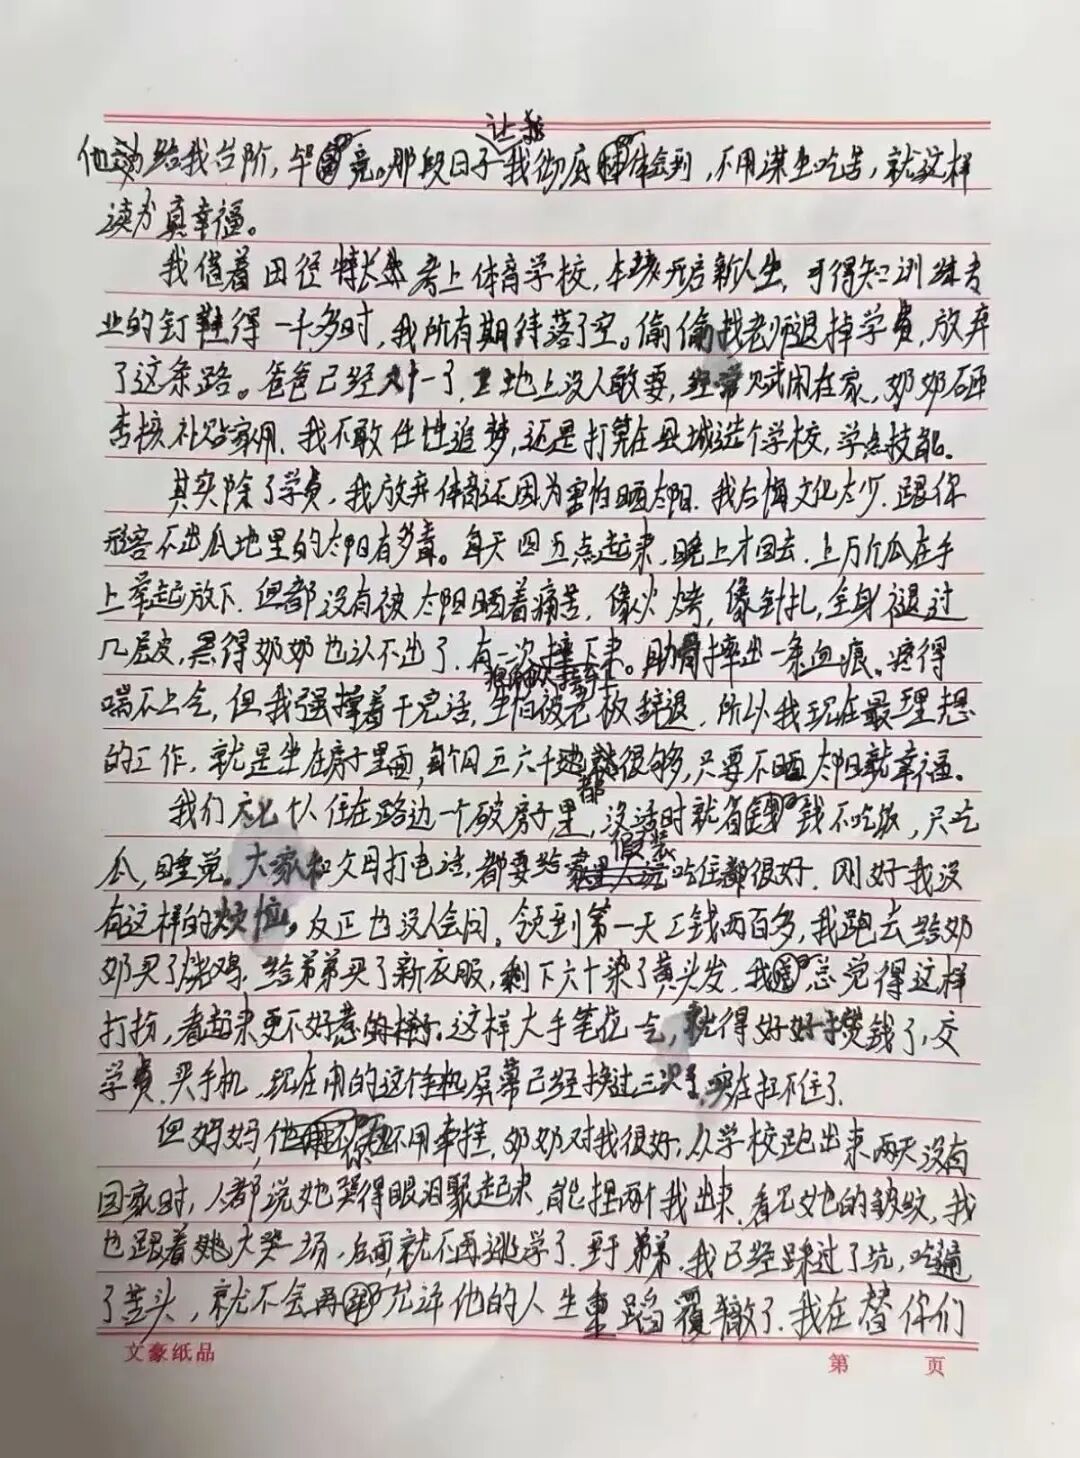 让我
给我台阶，毕竟。那段日子我彻底体会到，不用谋生吃苦，就这样
读书真幸福。
我借着田径特长生考上体育学校，本该开启新人生，可得知训练专
业的钉鞋得一千多时，我所有期待落了空。偷偷找老师退掉学费，放弃
了这条路。爸爸已经六十一了，工地上没人敢要，经常赋闲在家，奶奶砸
杏核补贴家用，我不敢任性追梦，还是打算在县城选个学校，学点技能。
其实除了学费，我放弃体育还因为害怕晒太阳，我后悔文化太少，跟你
形容不出瓜地里的太阳有多毒。每天四五点起来，晚上才回去，上万个瓜在手
上举起放下，但都没有被太阳晒着痛苦，像火烤，像针扎，全身褪过
几层皮，黑得奶奶也认不出了，有一次摔下来。肋骨摔出一条血痕。疼得
喘不上气，但我强撑着干完活，生怕被老板辞退，所以我现在最理想
的工作，就是坐在房子里面，每个月五六千就很够，只要不晒太阳就幸福。
都
我们十人住在路边一个破房子里，没活时就省钱不吃饭，只吃
假装
瓜，睡觉。大家和父母打电话，都要给吃住都很好，刚好我没
有这样的烦恼。反正也没人会问。领到第一天工钱两百多，我跑去给奶
奶买了烧鸡，给弟弟买了新衣服，剩下六十染了黄头发，我总觉得这样
打扮，看起来更不好惹的样子。这样大手笔一气，就得好好攒钱了，交
学费，买手机，现在用的这个手机屏幕已经换过三次了，实在扛不住了。
但妈妈，你不用牵挂，奶奶对我很好，从学校跑出来两天没有
回家时，人都说她哭得眼泪聚起来，能捏两个我出来，看见她的皱纹，我
也跟着她大哭一场，后面就不再逃学了，至于弟弟，我已经踩过了坑，吃遍
了苦头，就不会再允许他的人生重蹈覆辙了，我在替你们
文豪纸品
第 页